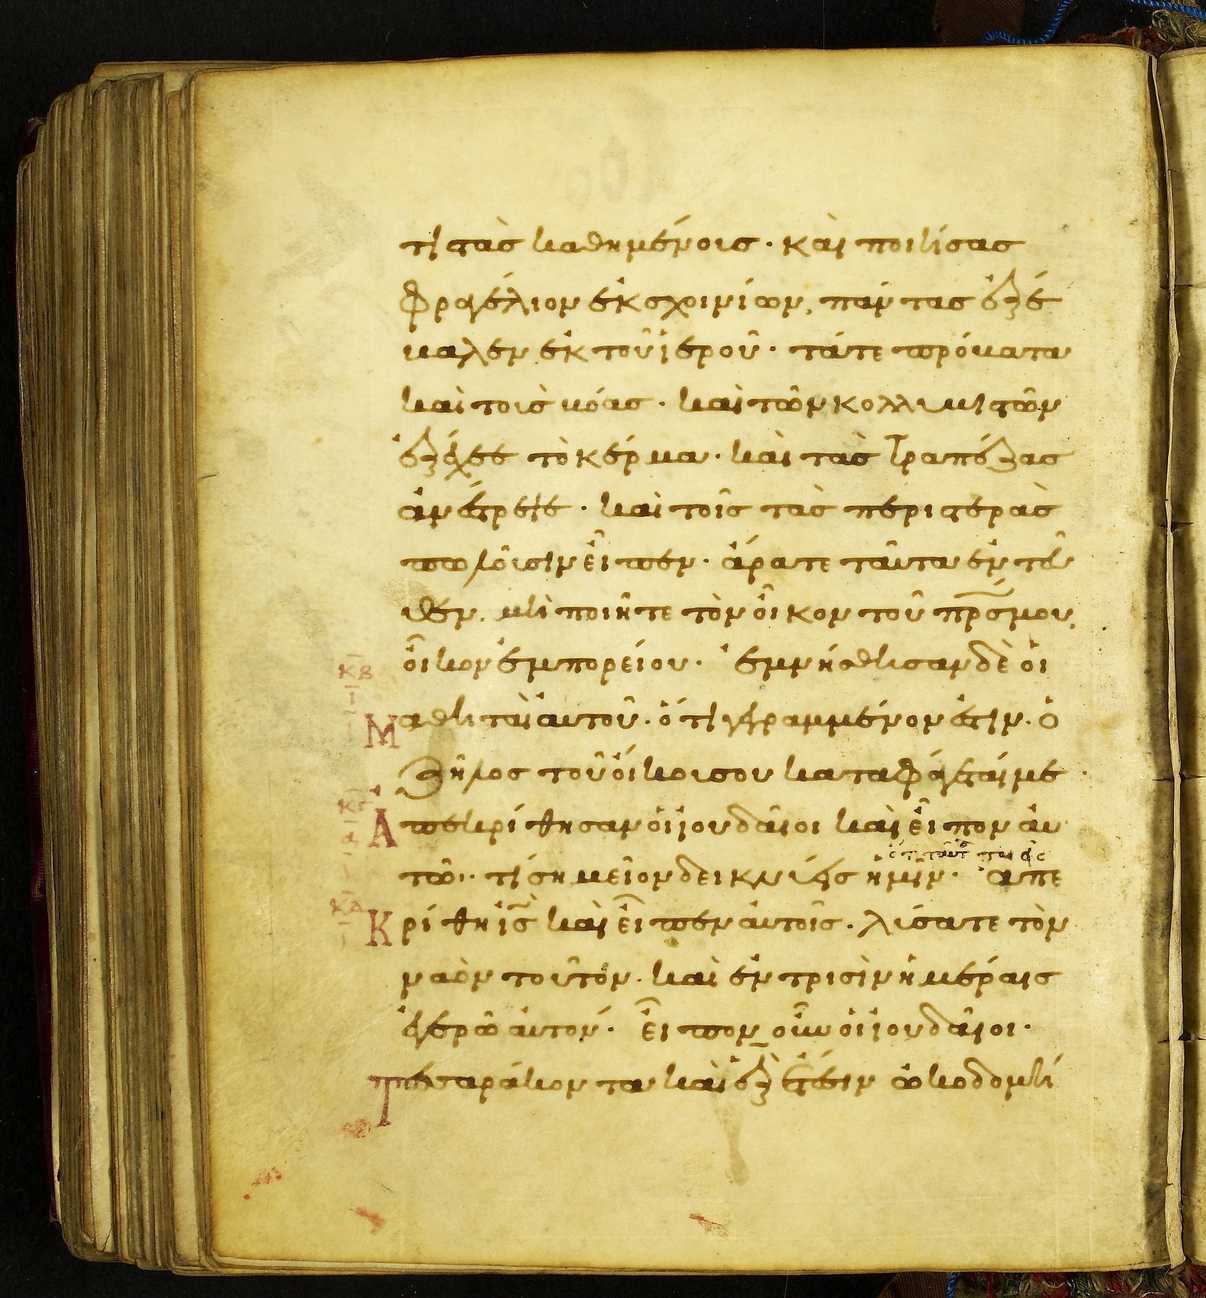 τιστὰς καθημένοις· καὶ ποιήσας
φραγέλιον ἐκ σχοινίων, πάντας ἐξέ
βαλεν ἐκ τοῦ ἱεροῦ· τά τε πρόβατα
καὶ τοὺς βόας· καὶ τῶν κολλυβιστῶν
ἐξέχεε τὸ κέρμα· καὶ τὰς τραπέζας
ἀνέτρεψε· καὶ τοῖς τὰς περιστερὰς
πωλοῦσιν εἶπεν· ἄρατε ταῦτα ἐντεῦ
θεν, μὴ ποιῆτε τὸν οἶκον τοῦ πρς μου,
οἶκον ἐμπορείου· ἐμνήσθησαν δὲ οἱ
κβ
ι
Μαθηταὶ αὐτοῦ· ὅτι γεγραμμένον ἐστιν· ὁ
ζῆλος τοῦ οἴκου σου καταφάγεταί με·
κγ
α
Ἀπεκρίθησαν οἱ ἰουδαῖοι καὶ εἶπον αὐ
ὅτι ταῦτα ποιεῖς
τῶ· τί σημεῖον δεικνύεις ἡμῖν· ἀπε
κδ
Κρίθη ἰς καὶ εἶπεν αὐτοῖς· λύσατε τὸν
ναὸν τοῦτον· καὶ ἐν τρισὶν ἡμέραις
ἐγερῶ αὐτόν· εἶπον οὖν οἱ ἰουδαῖοι·
Τεσαράκοντα καὶ ἓξ ἔτεσιν ὠκοδομή